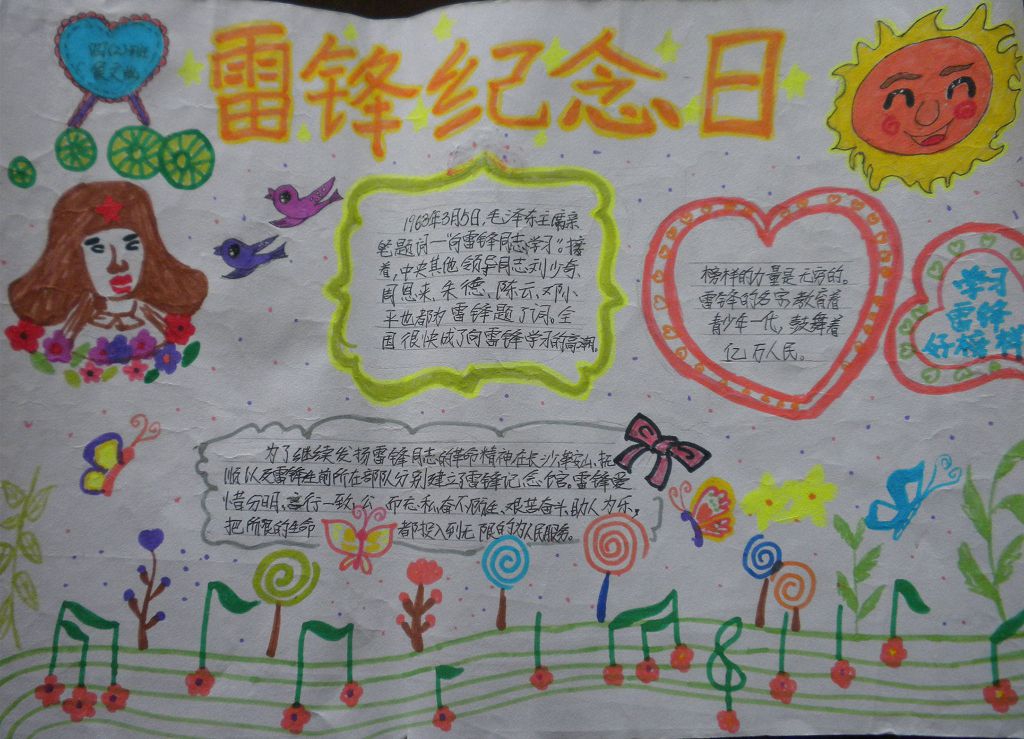 雷锋纪念日
1963年3月5日，毛泽东主席亲
笔题词一“向雷锋同志学习”。接
着，中央其他领导同志刘少奇、
周恩来、朱德、陈云、邓小
平也都为雷锋题了词。全
国很快成了向雷锋学习的高潮。
榜样的力量是无穷的。
雷锋的名字教育着
青少年一代，鼓舞着
亿万人民。
学习
雷锋
好榜样
为了继续发扬雷锋同志的革命精神在长沙、鞍山、抚
顺以及雷锋生前所在部队分别建立了雷锋纪念馆。雷锋爱
憎分明，言行一致，公而忘私，奋不顾生、艰苦奋斗，助人为乐，
把所限的生命都投入到无限的为人民服务。